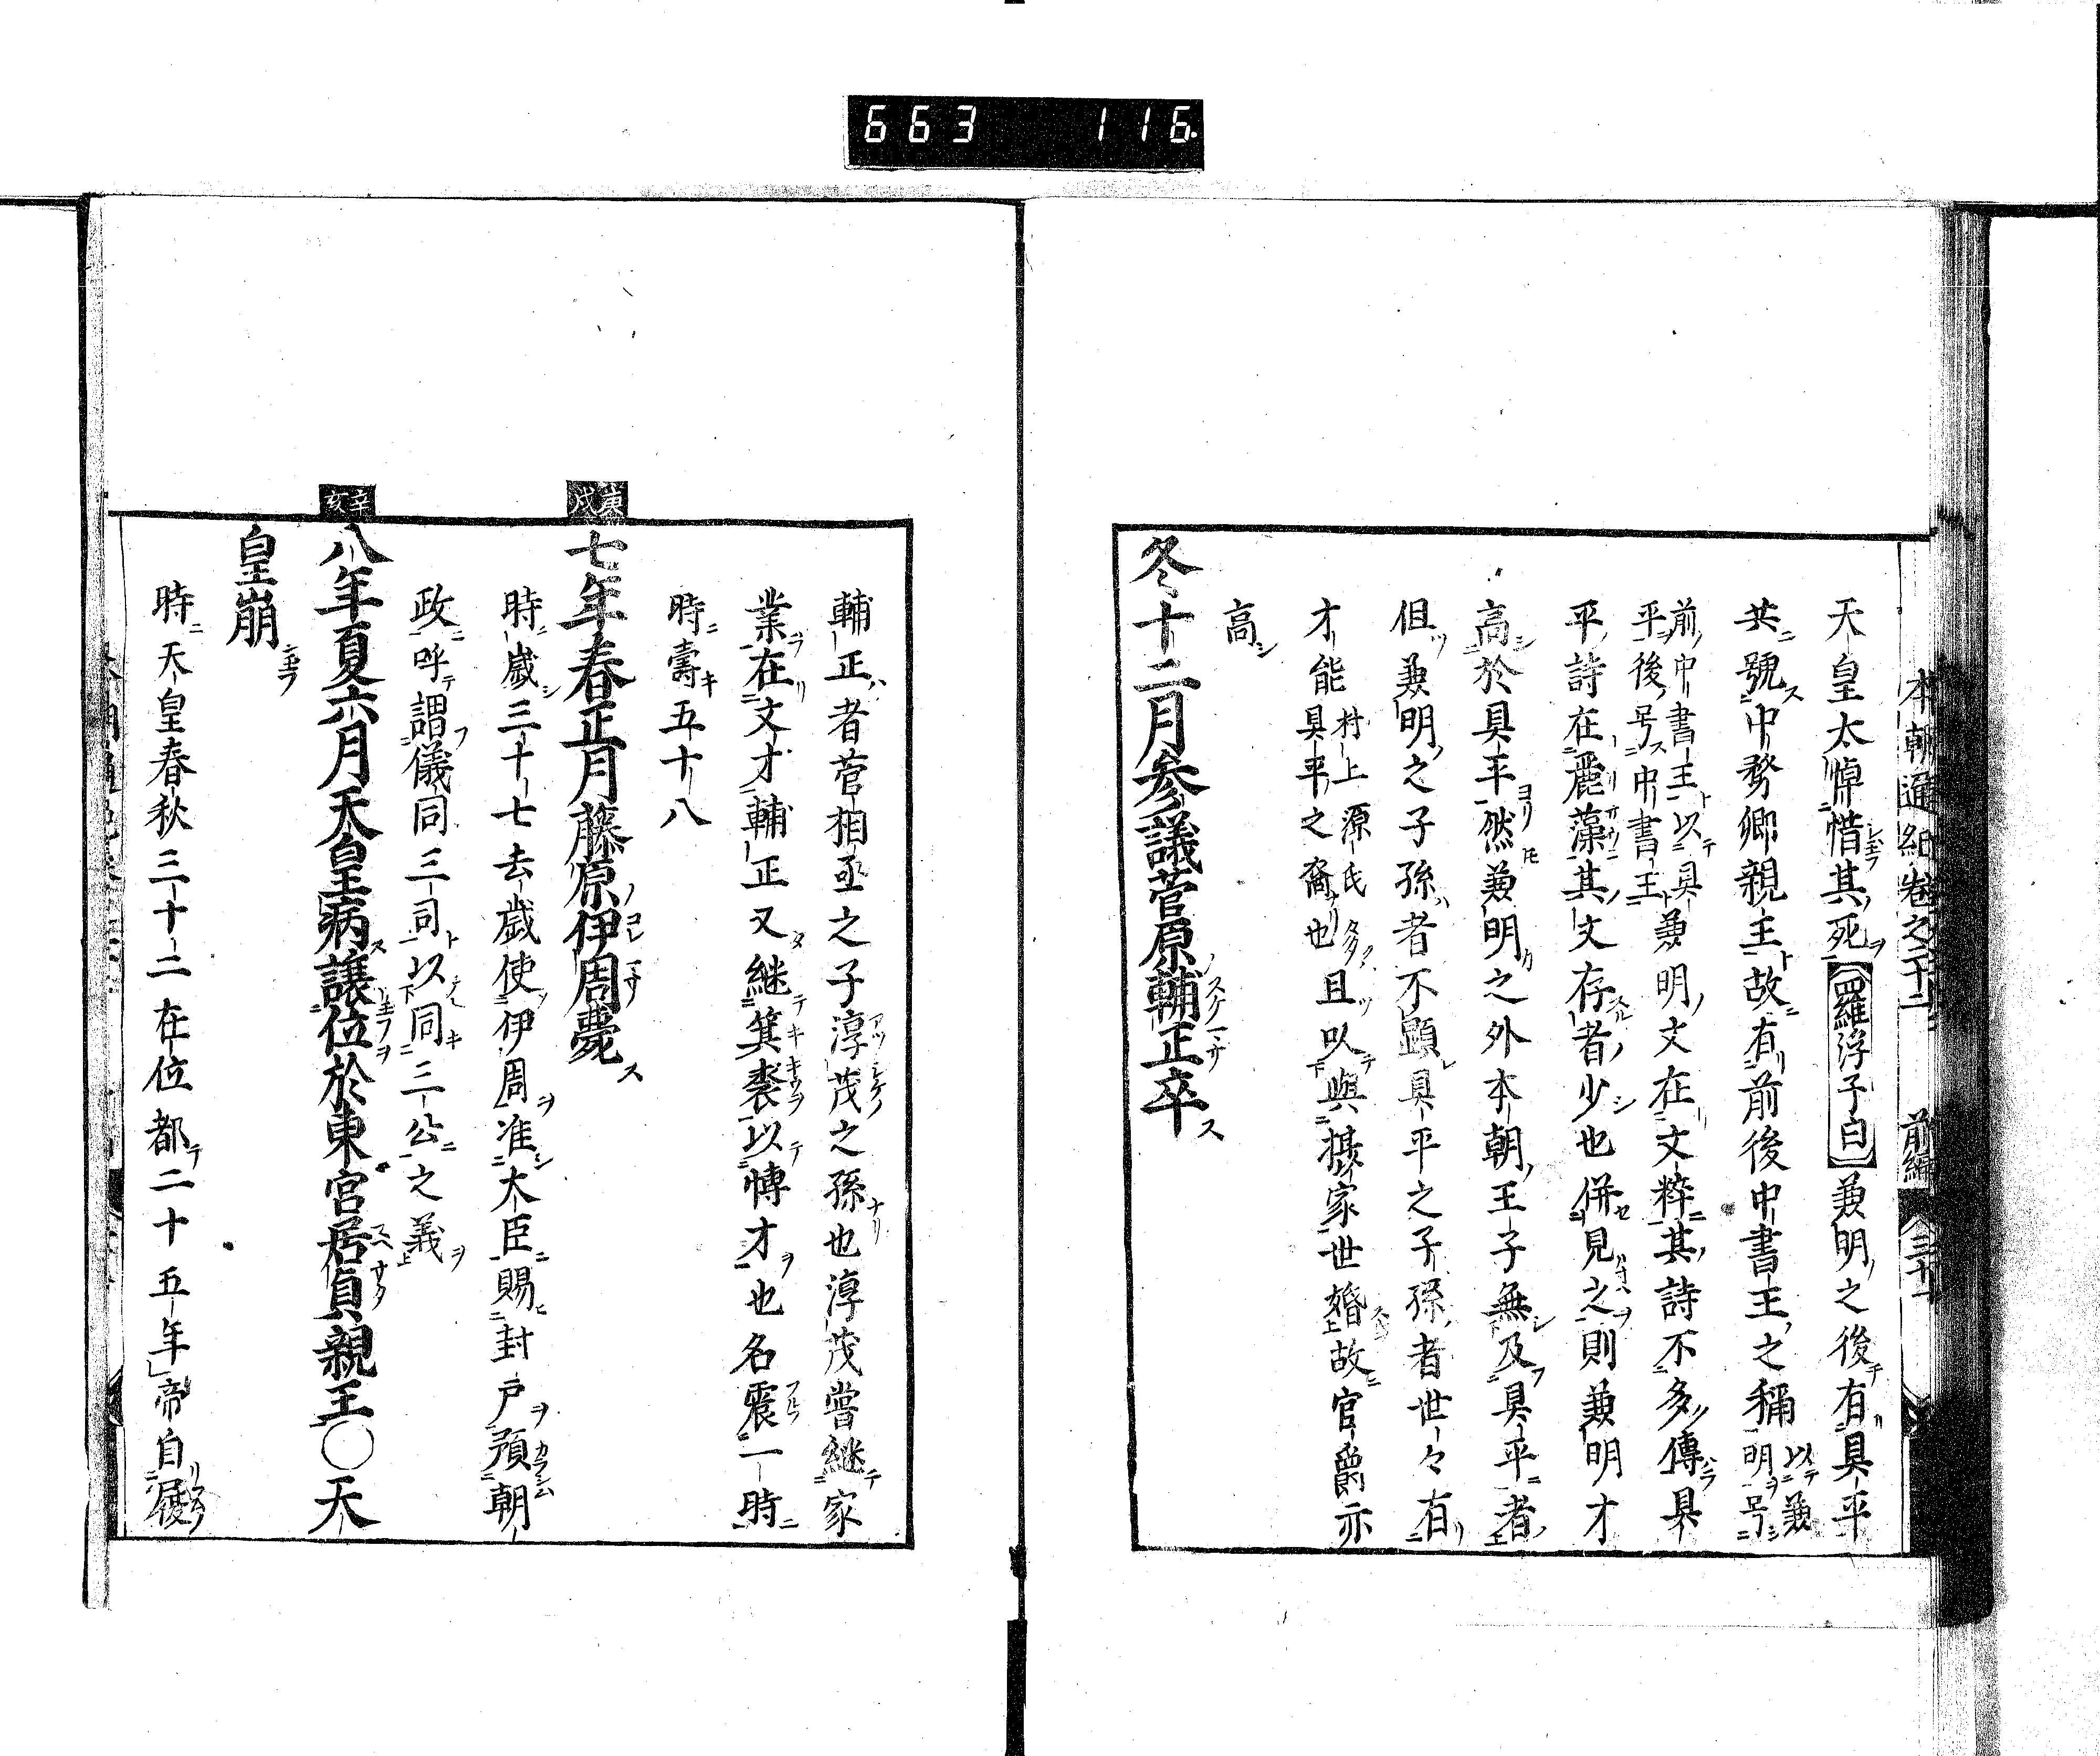 663 116.
本朝通紀卷之十二 前編 三十一
天皇太悼惜其死羅浮子曰兼明之後有具平
共號中務卿親王故有前後中書王之稱以兼明号
前中書王以具平後号中書王兼明文在文粹其詩不多傳具
平詩在麗藻其文存者少也併見之則兼明才
高於具平然兼明之外本朝王子無及具平者
但兼明之子孫者不顕具平之子孫者世々有
才能村上源氏多具平之裔也且以與摂家世婚故官爵亦
高
冬十二月参議菅原輔正卒
輔正者菅相丞之子淳茂之孫也淳茂嘗継家
業在文才輔正又継箕裘以博才也名震一時
時壽五十八
庚戌
七年春正月藤原伊周薨
時歳三十七去歳使伊周准大臣賜封戸預朝
政呼謂儀同三司以同三公之義
辛亥
八年夏六月天皇病譲位於東宮居貞親王〇天
皇崩
時天皇春秋三十二在位都二十五年帝自履